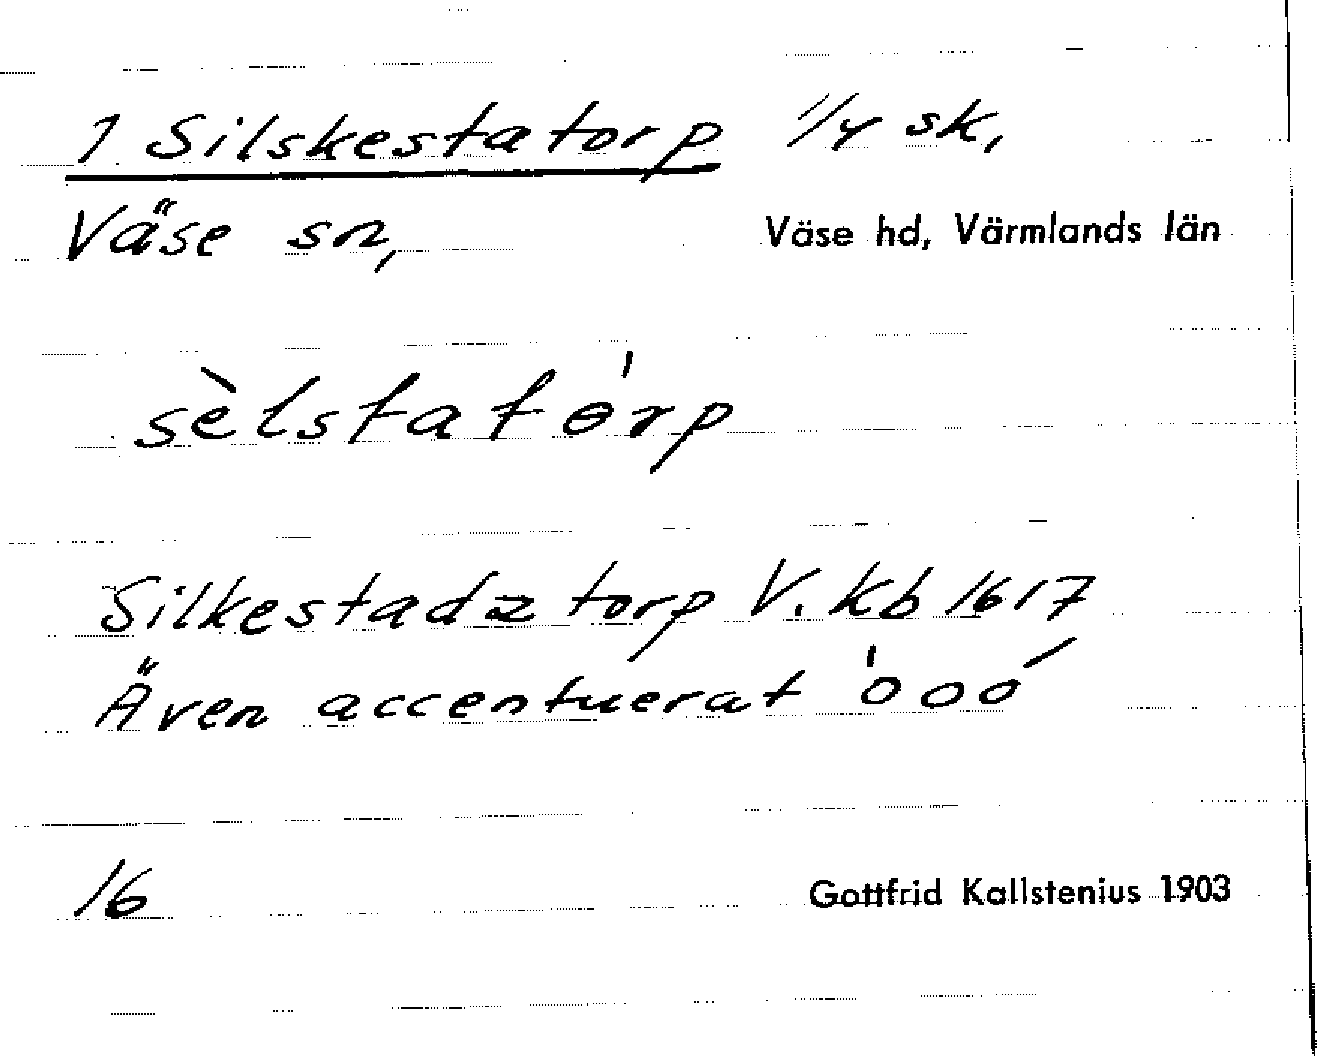 1 Silskestatorp 1/4 sk,
Väse sn, Väse hd, Värmlands län
sèlstatɵ'rp
Silkestadz torp V. Kb 1617
Även accentuerat 'o o ó
16 Gottfrid Kallstenius 1903